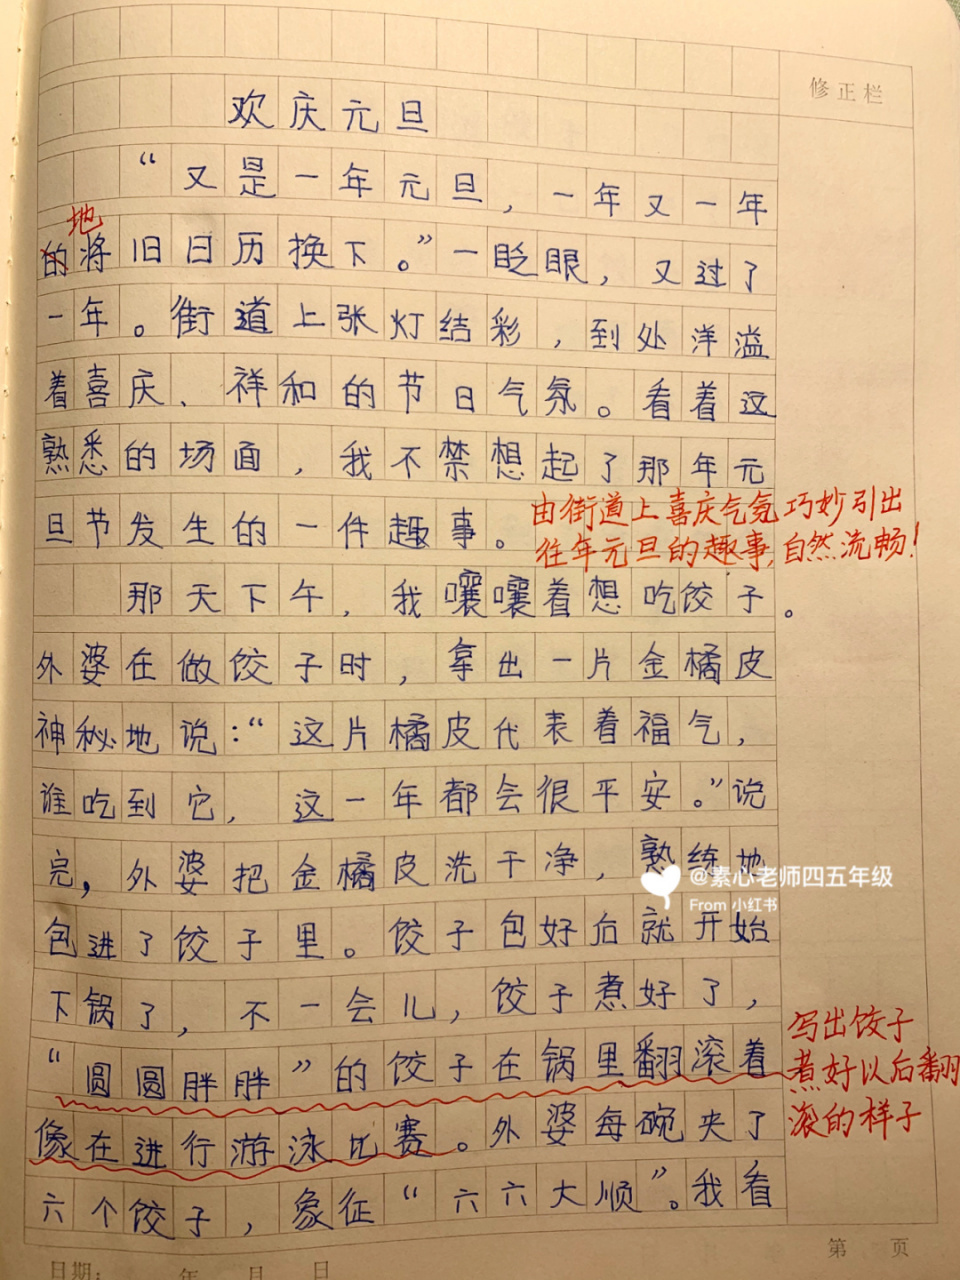 修正栏
欢庆元旦
“又是一年元旦，一年又一年
地
的将旧日历换下。”一眨眼，又过了
一年。街道上张灯结彩，到处洋溢
着喜庆、祥和的节日气氛。看着这
熟悉的场面，我不禁想起了那年元
旦节发生的一件趣事。
由街道上喜庆气氛巧妙引出
往年元旦的趣事,自然流畅!
那天下午，我嚷嚷着想吃饺子。
外婆在做饺子时，拿出一片金橘皮
神秘地说：“这片橘皮代表着福气，
谁吃到它，这一年都会很平安。”说
完，外婆把金橘皮洗干净，熟练地
@素心老师四五年级
From 小红书
包进了饺子里。饺子包好后就开始
下锅了，不一会儿，饺子煮好了，
“圆圆胖胖”的饺子在锅里翻滚着
像在进行游泳比赛。外婆每碗夹了
写出饺子
煮好以后翻
滚的样子
六个饺子，象征“六六大顺”。我看
第 页
日期: 年 月 日